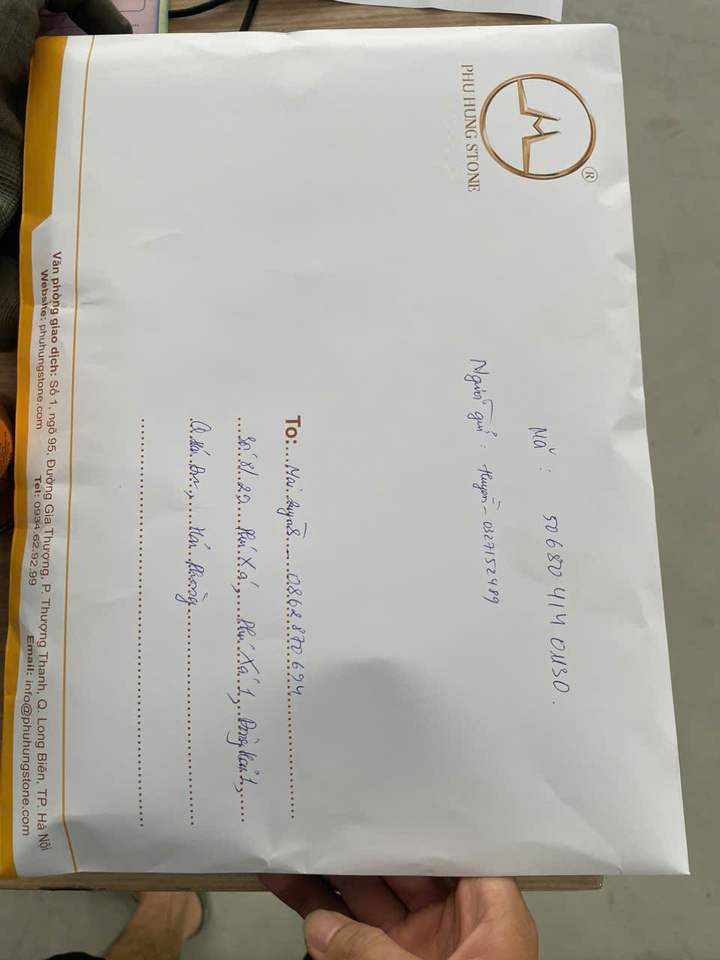 PHU HUNG STONE
®
Mã : 50680 414 01130.
Người gửi : Huyền - 0327152489
To: Mai Duyên - 0862870694
Số 8/22, Phú Xá, Phú Xá 1, Đông Hải 1,
Q Hải An, Hải Phòng
Văn phòng giao dịch: Số 1, ngõ 95, Đường Gia Thượng, P. Thượng Thanh, Q. Long Biên, TP. Hà Nội
Website: phuhungstone.com Tel: 0934.62.92.99 Email: info@phuhungstone.com